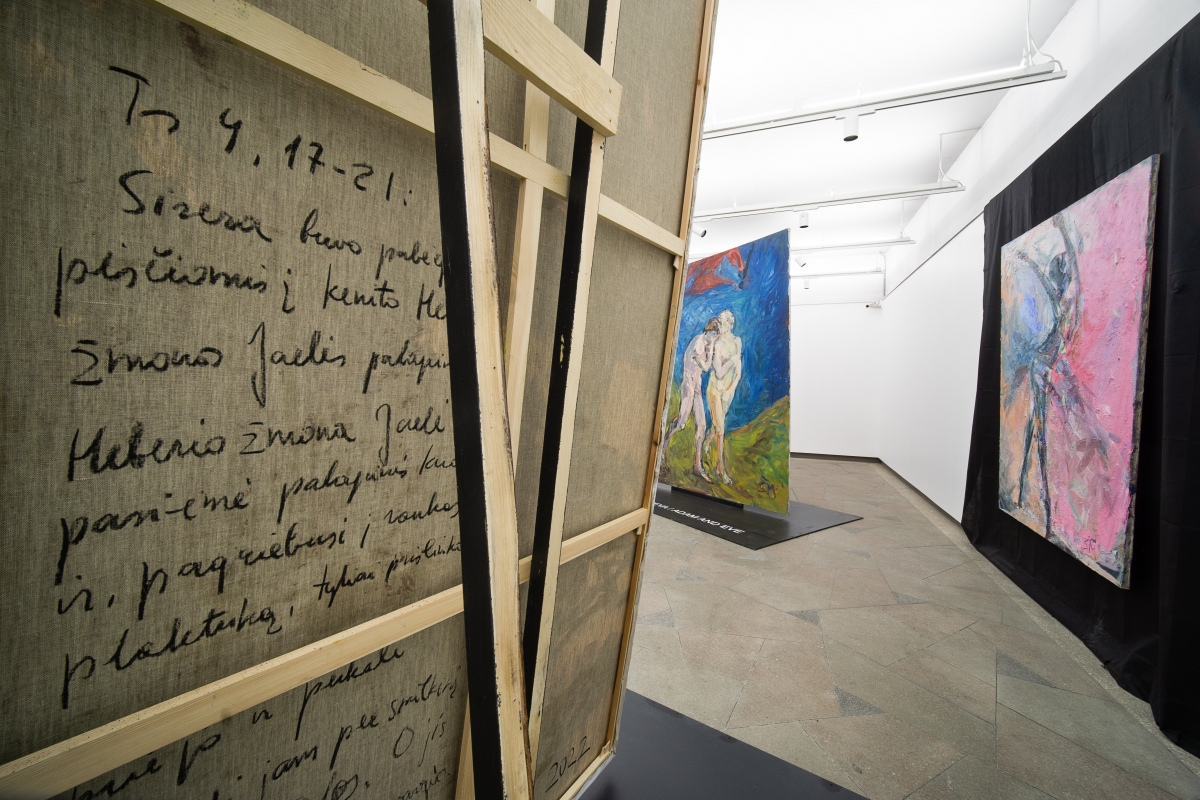 Ts 4, 17-21:
Sisera buvo pabėg
pėsčiomis į kento He
žmonos Jaelės palapin
Heberio žmona Jaelė
pasi-ėmė palapinės kuo
ir, pagriebusi į rankas
plaktuką, tyliai prislinko
prie jo ir perkalė
jam per smilkinį
O jis
2022
ADAM AND EVE